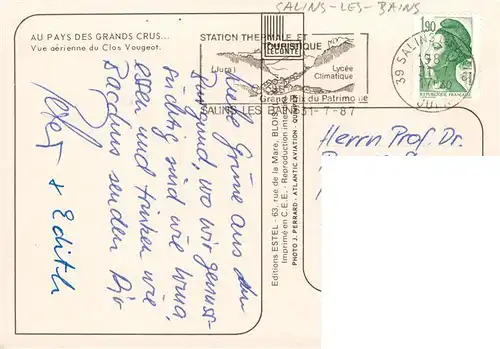 SALINS-LES-BAINS
AU PAYS DES GRANDS CRUS...
Vue aérienne du Clos Vougeot.
STATION THERMALE ET
TOURISTIQUE
LECONTE
(Jura)
Lycée
Climatique
Grand Prix du Patrimoine
SALINS LES BAINS 31-7-87
1,90
39 SALINS
JURA
Liebe Grüße aus dem
Burgund, wo wir genuss-
süchtig sind wie
essen und trinken wie
Bacchus senden Dir
+ Edith
Editions ESTEL - 63, rue de la Mare, BLOIS
Imprimé en C.E.E. - Reproduction
PHOTO J. PERRARD - ATLANTIC AVIATION
Herrn Prof. Dr.